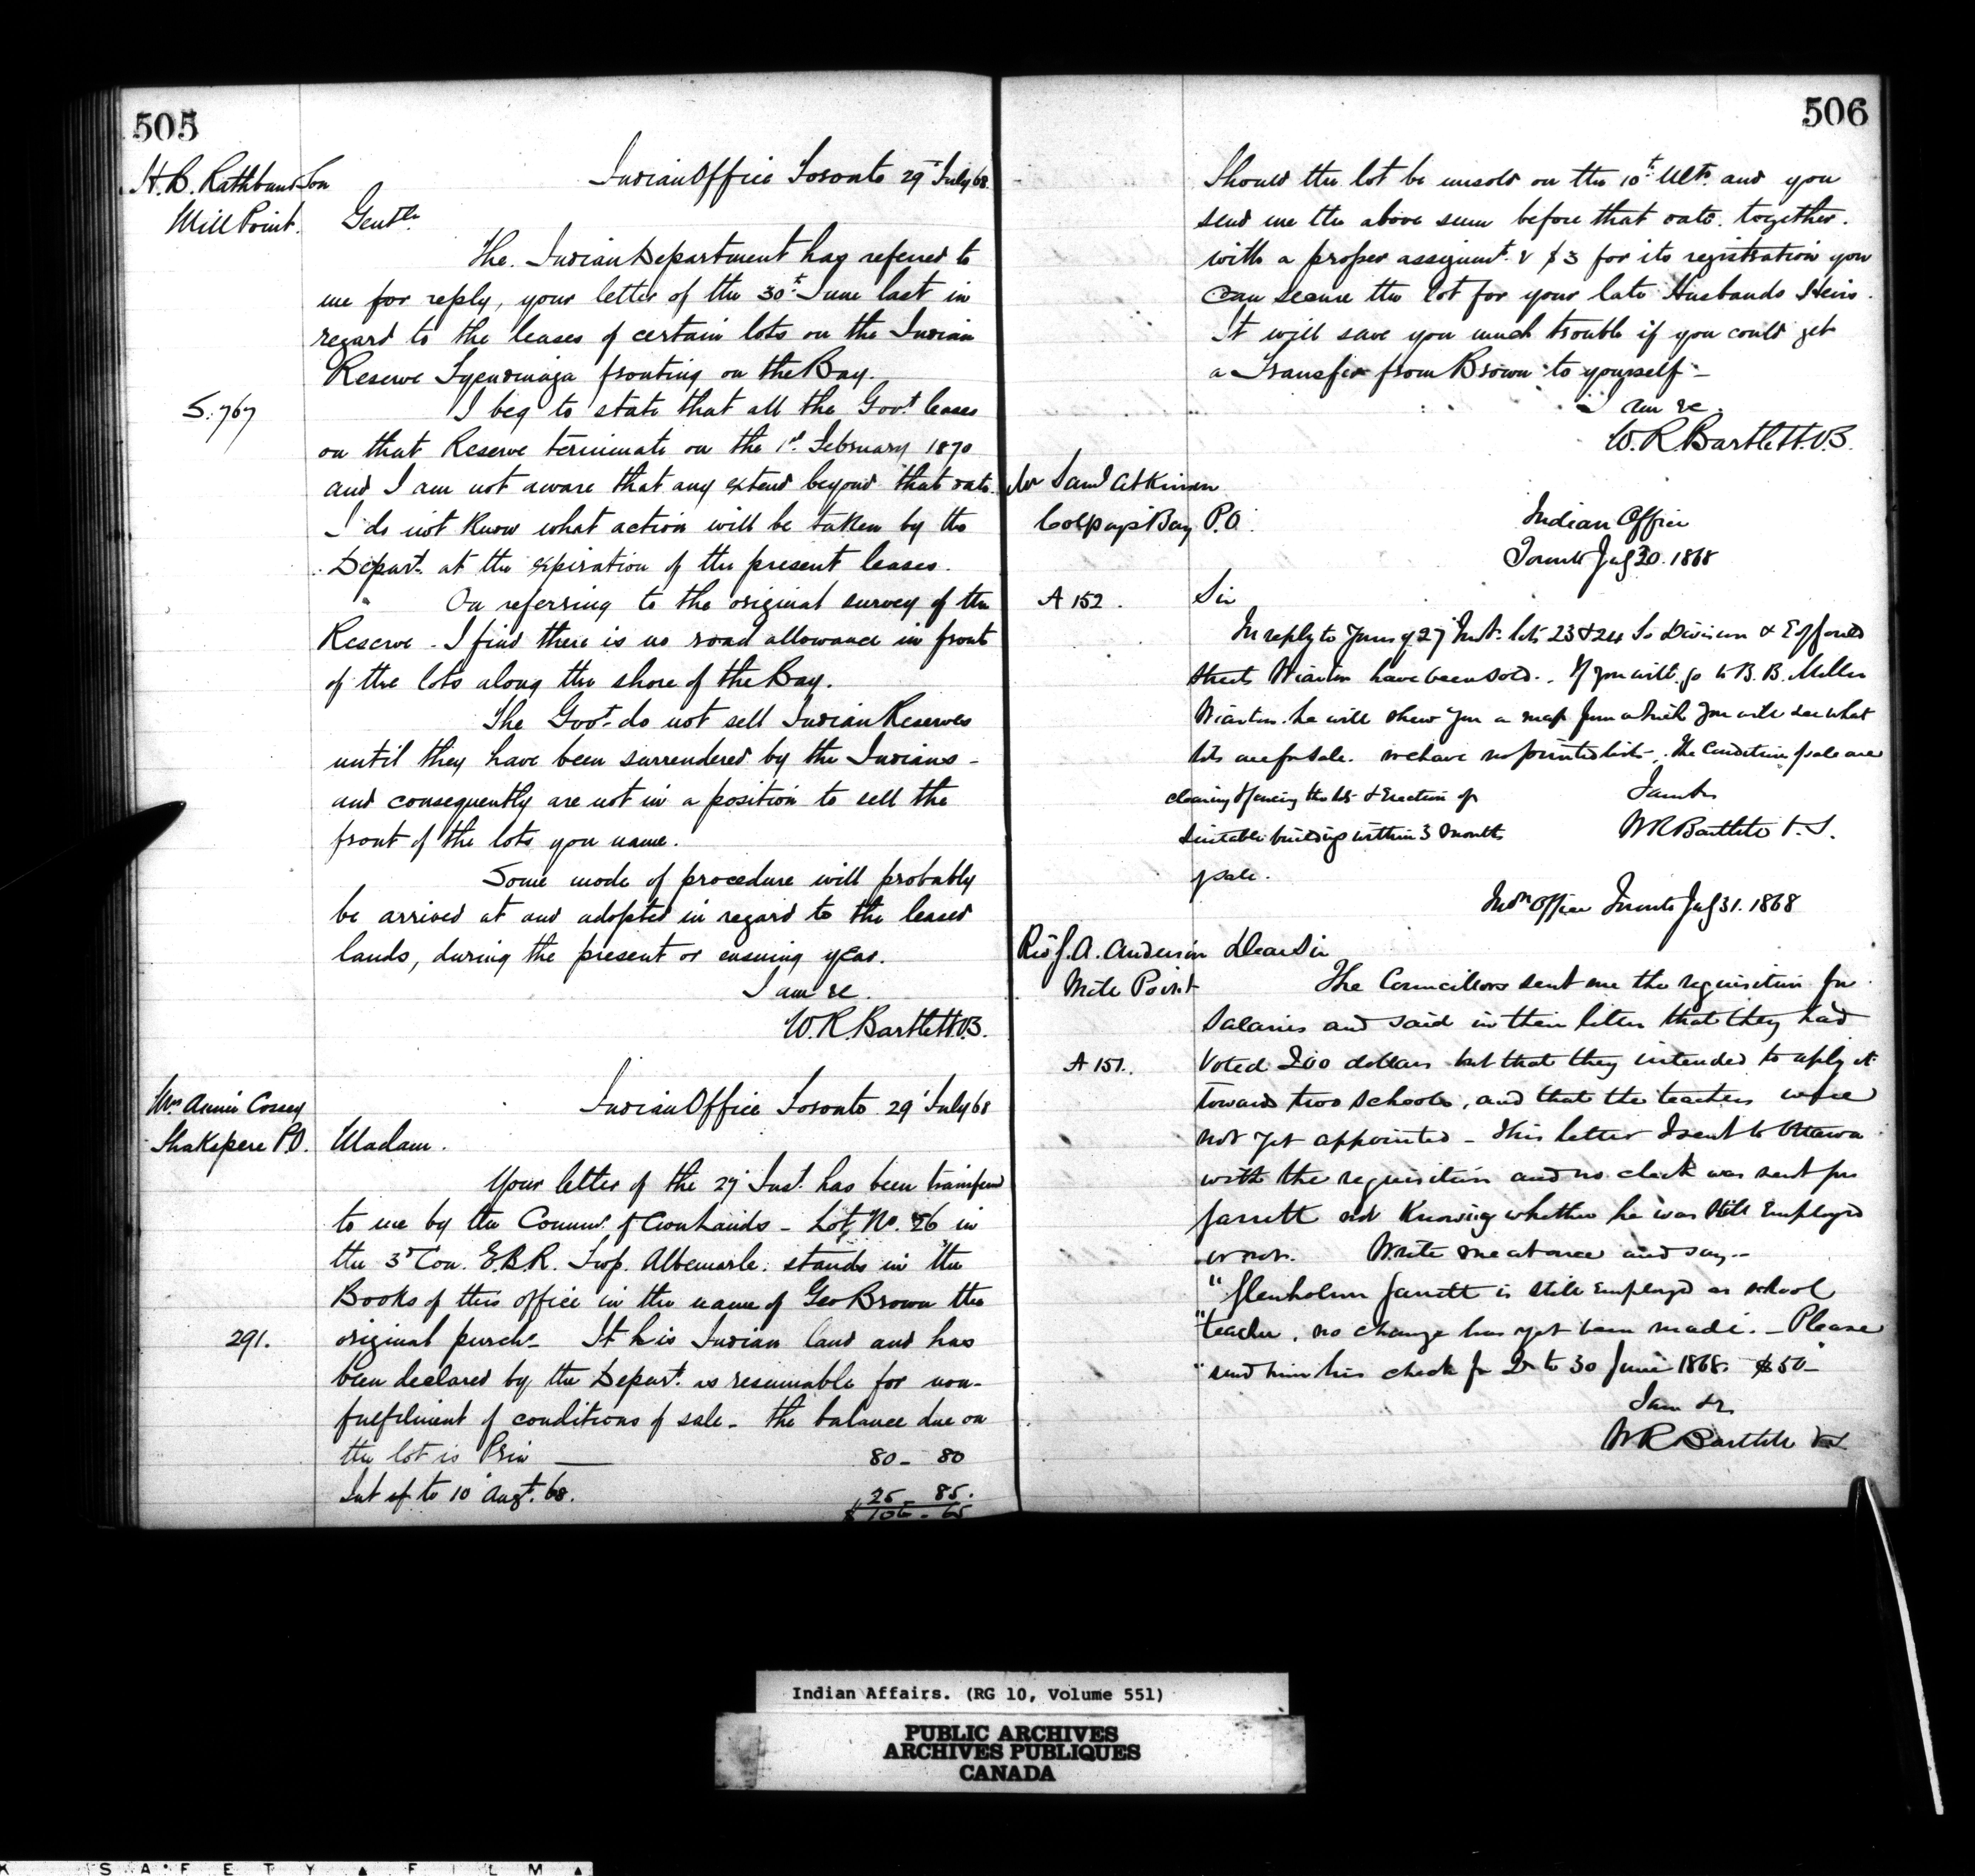 505
H. B. Rathbun & Son
Mill Point.
Indian Office Toronto 29 July 68.
Gentn.
The Indian Department has referred to
me for reply, your letter of the 30th June last in
regard to the leases of certain lots on the Indian
Reserve Tyendinaga fronting on the Bay.
S. 767
I beg to state that all the Govt. leases
on that Reserve terminate on the 1st February 1870
and I am not aware that any extend beyond that date.
I do not know what action will be taken by the
Depart. at the expiration of the present leases.
On referring to the original survey of the
Reserve - I find there is no road allowance in front
of the lots along the shore of the Bay.
The Govt. do not sell Indian Reserves
until they have been surrendered by the Indians -
and consequently are not in a position to sell the
front of the lots you name.
Some mode of procedure will probably
be arrived at and adopted in regard to the leased
lands, during the present or ensuing year.
I am &c.
W. R. Bartlett
Mrs Annie Cossey
Shakspere P.O.
Indian Office Toronto 29 July 68
Madam.
Your letter of the 27 Inst. has been transferred
to me by the Commr. of Crown Lands - Lot No. 26 in
the 3d Con. E.B.R. Twp. Albemarle. stands in the
Books of this office in the name of Geo Brown the
291.
original purchr. It is Indian land and has
been declared by the Depart. as resumable for non-
fulfilment of conditions of sale - the balance due on
the lot is Prin — 80 - 80
Int up to 10 Augt. 68. 25 - 85.
$106 - 65
506
Should the lot be unsold on the 10th Ulto. and you
send me the above sum before that date. together.
with a proper assignmt. & $3 for its registration you
can secure the lot for your late Husbands Heirs.
It will save you much trouble if you could get
a Transfer from Brown to yourself -
I am &c.
W. R. Bartlett
Mr Saml Atkinson
Colpoys Bay P.O.
Indian Office
Toronto July 30. 1868
A 152.
Sir
In reply to yours of 27 Inst. lots 23 & 24 So Division &
streets Wiarton have been sold. If you will go to B. B. Miller
Wiarton he will shew you a map from which you will see what
lots are for sale. we have no printed list -. The Conditions of sale are
clearing & fencing the lots & erection of
suitable buildings within 3 months
of sale.
I am &c
W R Bartlett
Indn Office Toronto July 31. 1868
Revd J. A. Anderson
Mill Point
Dear Sir
The Councillors sent me the requisition for
Salaries and said in their letter that they had
A 151.
Voted 200 dollars but that they intended to apply it
towards two schools, and that the teachers were
not yet appointed - this letter I sent to Ottawa
with the requisition and no check was sent for
Jarrett not knowing whether he was still Employed
or not. Write me at once and say --
"Glenholm Jarrett is still employed as school
"teacher, no change has yet been made. - Please
"send him his check for Qr to 30 June 1868. $50 -"
I am &c.
W R Bartlett
Indian Affairs. (RG 10, Volume 551)
PUBLIC ARCHIVES
ARCHIVES PUBLIQUES
CANADA
SAFETY ▲ FILM ▲